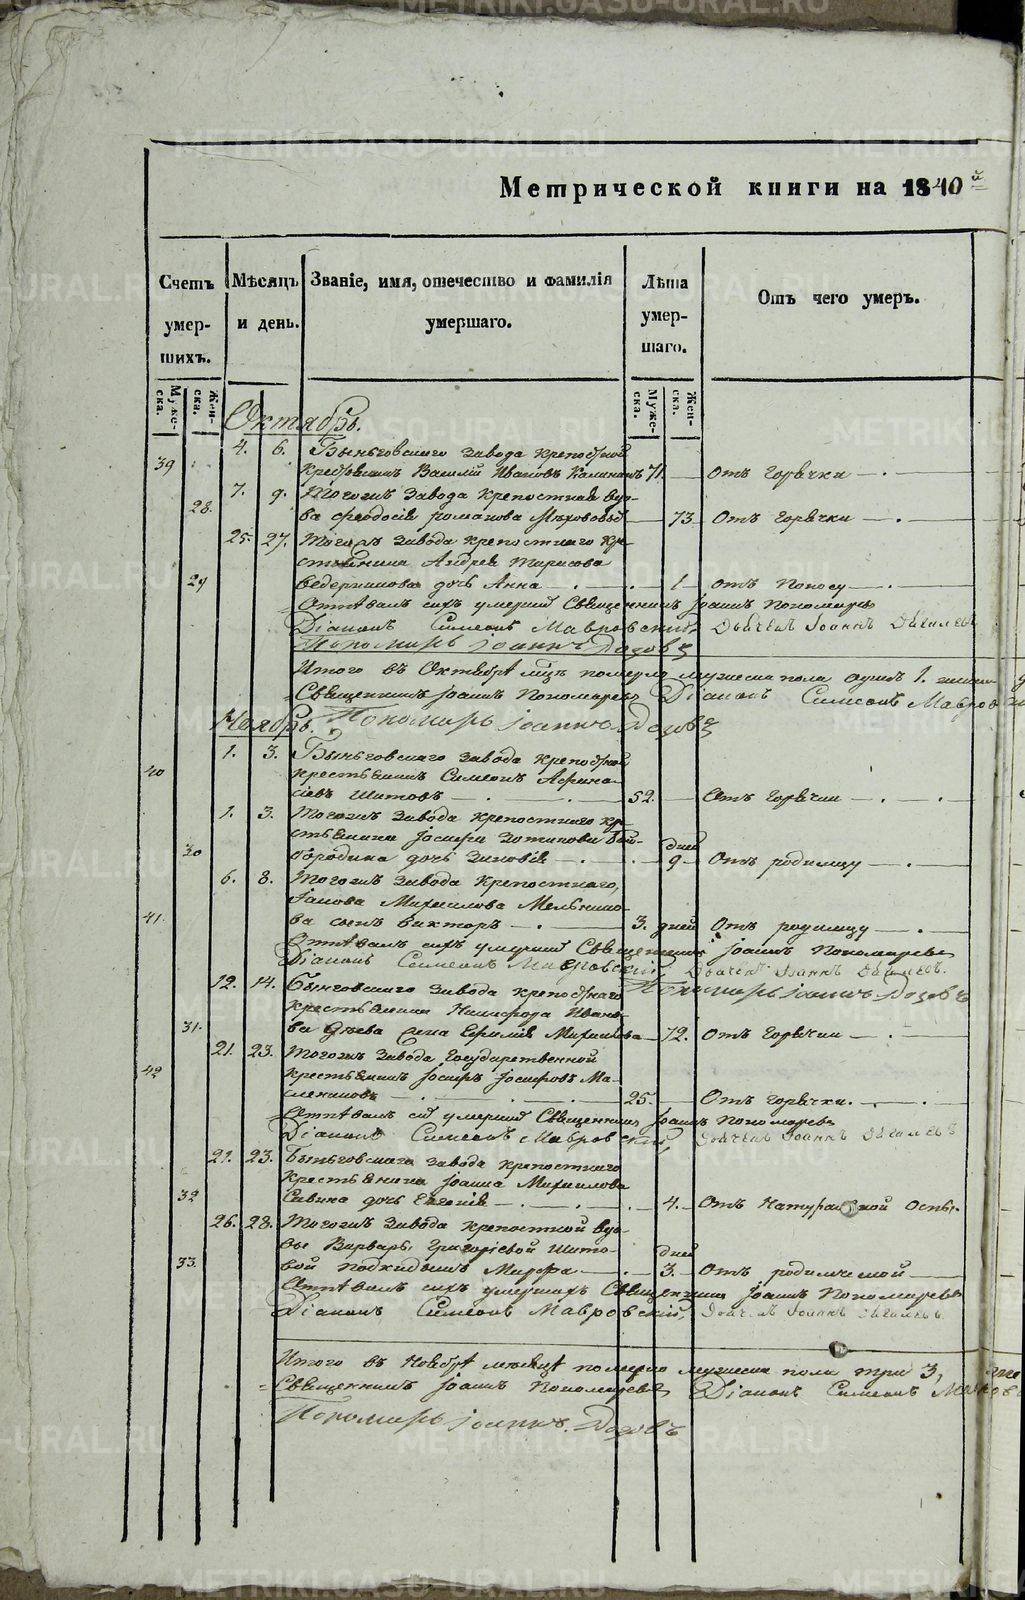 METRIKI.GASU-URAL.RU
Метрической книги на 1840й
Счетъ умершихъ.
Мѣсяцъ и день.
Званіе, имя, отечество и фамилія умершаго.
Лѣта умершаго.
Отъ чего умеръ.
Муже-ска. Жен-ска.
Муже-ска. Жен-ска.
Октябрь.
39 4. 6. Быньговскаго завода крепостной
крестьянинъ Василій Ивановъ Калининъ 71. — отъ горячки — .
28. 7. 9. Тогожъ завода крепостная вдо-
ва Феодосія Романова — 73. Отъ горячки — . —
25. 27. Тогожъ завода крепостнаго кре-
стьянина Андрея Тарасова
29 Ведерникова дочь Анна — 1 — отъ поносу — .
Отпѣвалъ сихъ умершихъ Священникъ Іоаннъ Пономаревъ
Діаконъ Симеонъ Мавровскій, Дьячекъ Іоаннъ
Пономарь Іоаннъ
Итого въ Октябрѣ м҃цѣ померло мужеска пола душъ 1. женска
Священникъ Іоаннъ Пономаревъ Діаконъ Симеонъ Мавров
Ноябрь. Пономарь Іоаннъ
1. 3. Быньговскаго завода крепостной
40 крестьянинъ Симеонъ Афана-
сіевъ Шитовъ — . — 52. Отъ горячки — . —
1. 3. Тогожъ завода крепостнаго кре-
стьянина Іосифа Зотикова Бой- дней
30 бородина дочь Зиновія — . — 9 — Отъ родимцу — .
6. 8. Тогожъ завода крепостнаго,
Іакова Михаилова Мельнико-
41. ва сынъ Викторъ — . — 3. дней Отъ родимцу — . —
Отпѣвалъ сихъ умершихъ Священникъ Іоаннъ Пономаревъ
Діаконъ Симеонъ Мавровскій, Дьячекъ Іоаннъ
Пономарь Іоаннъ
12. 14. Быньговскаго завода крепостнаго
крестьянина Никифора Ивано-
31. ва жена Ефимія Михаилова — 72. Отъ горячки — . —
21. 23. Тогожъ завода Государственной
42 крестьянинъ Іосифъ Іосифовъ Ма-
слениковъ — . — 25. Отъ горячки. — . —
Отпѣвалъ сихъ умершихъ Священникъ Іоаннъ Пономаревъ
Діаконъ Симеонъ Мавровскій, Дьячекъ Іоаннъ
21. 23. Быньговскаго завода крепостнаго
крестьянина Іоанна Михаилова
32 Савина дочь Евгенія — . — 4. — Отъ натуральной оспы. —
26. 28. Тогожъ завода крепостной вдо-
вы Варвары Григоріевой Шито- дней
33. вой подкидышъ Марфа — . — 3. — Отъ родимчемой —
Отпѣвалъ сихъ умершихъ Священникъ Іоаннъ Пономаревъ
Діаконъ Симеонъ Мавровскій, Дьячекъ Іоаннъ
Итого въ Ноябрѣ месяцѣ померло мужеска пола три 3,
Священникъ Іоаннъ Пономаревъ Діаконъ Симеонъ
Пономарь Іоаннъ